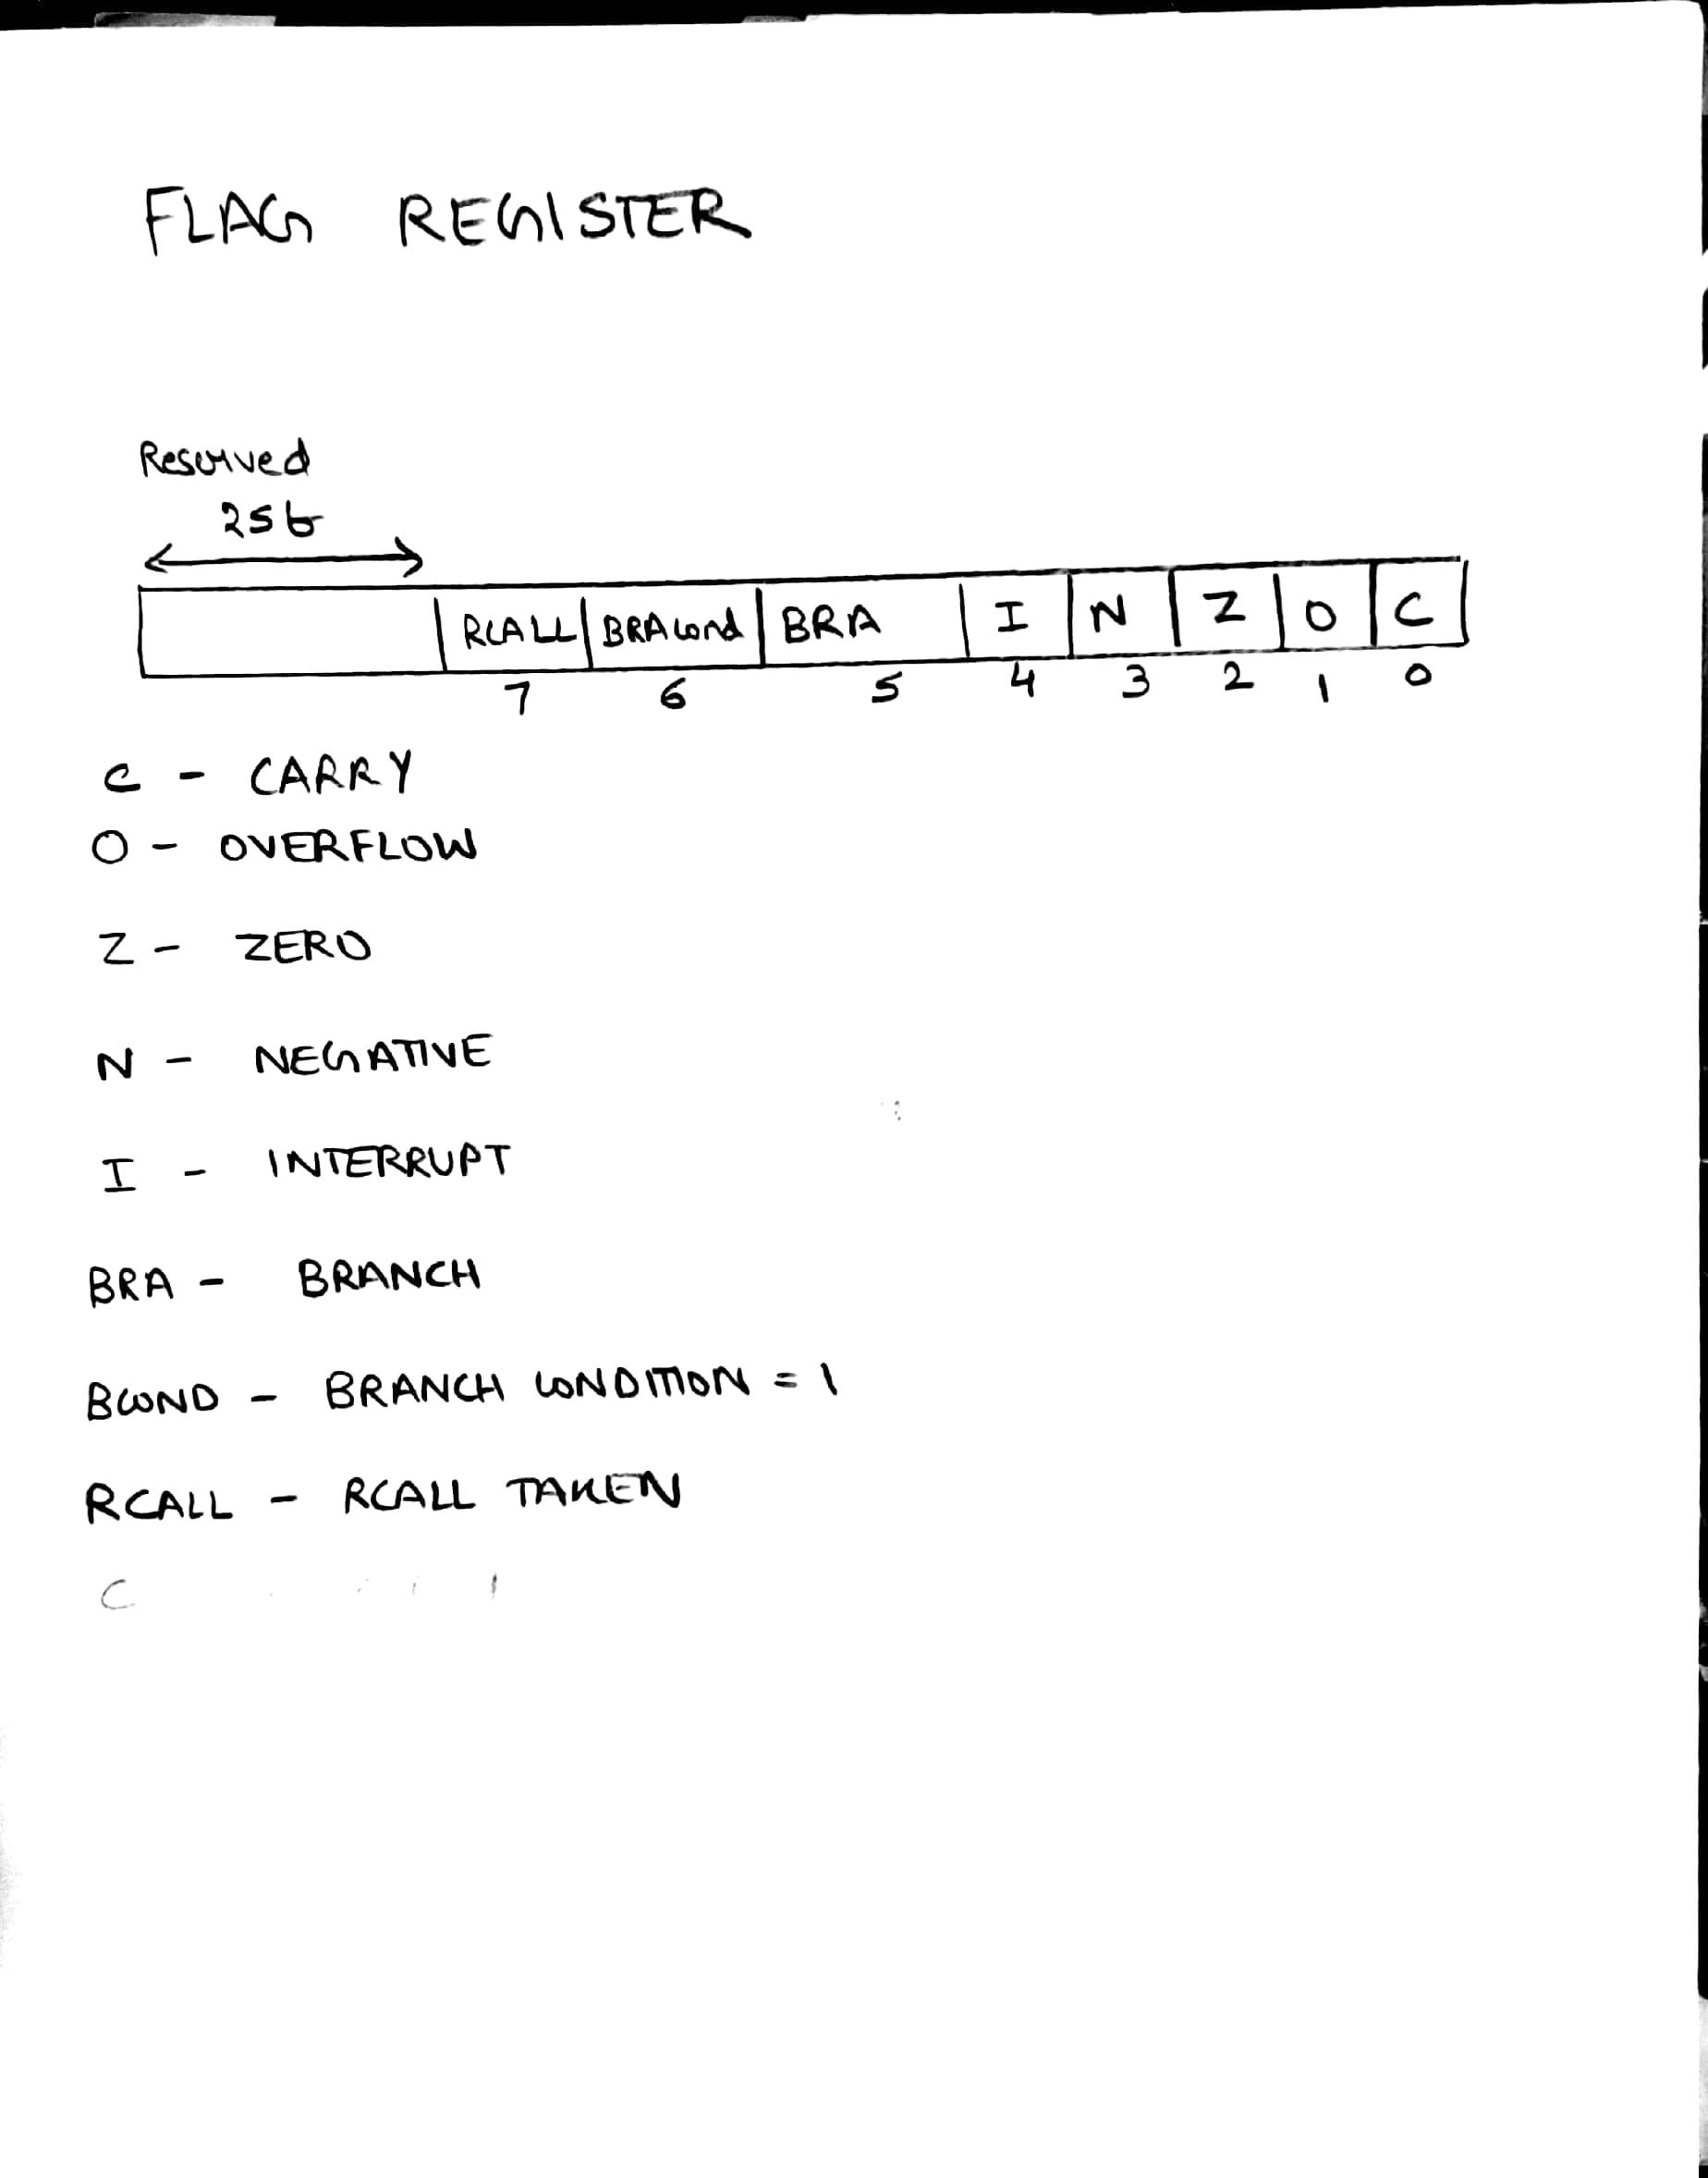 FLAG REGISTER
Reserved
25b
RCALL BRAcond BRA I N Z O C
7 6 5 4 3 2 1 0
C - CARRY
O - OVERFLOW
Z - ZERO
N - NEGATIVE
I - INTERRUPT
BRA - BRANCH
BCOND - BRANCH CONDITION = 1
RCALL - RCALL TAKEN
C